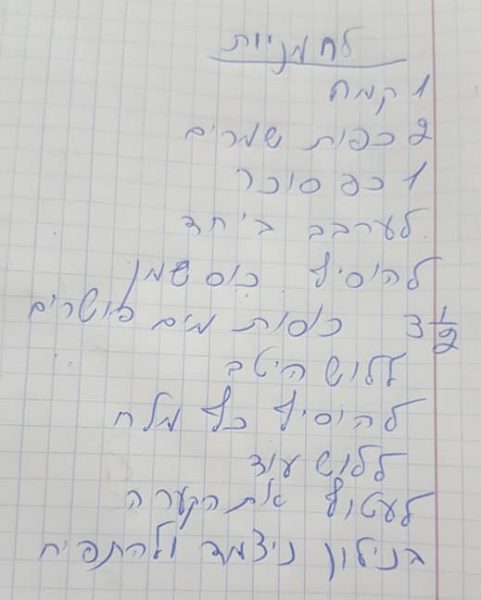 לחמניות
1 קמח
2 כפות שמרים
1 כפ סוכר
לערבב ביחד
להוסיף כוס שמן
3 1/2 כוסות מים פושרים
ללוש היטב
להוסיף כף מלח
ללוש עוד
לעטוף את הקערה
בנילון ניצמד ולהתפיח